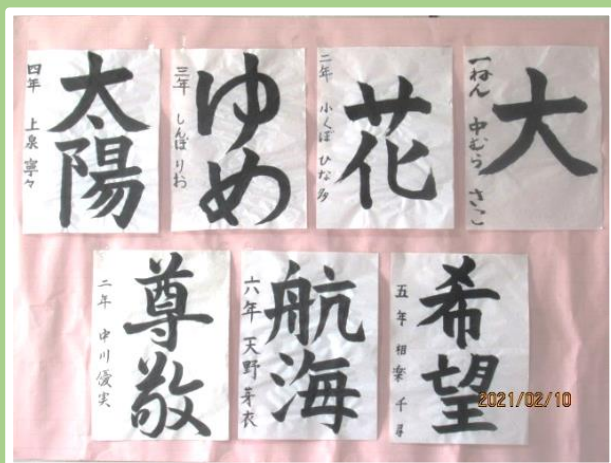 大
一ねん 中むら さこ
花
二年 小くぼ ひな多
ゆめ
三年 しんぼ りお
太陽
四年 上泉 寧々
希望
五年 相楽 千尋
航海
六年 天野 芽衣
尊敬
二年 中川 優実
2021/02/10